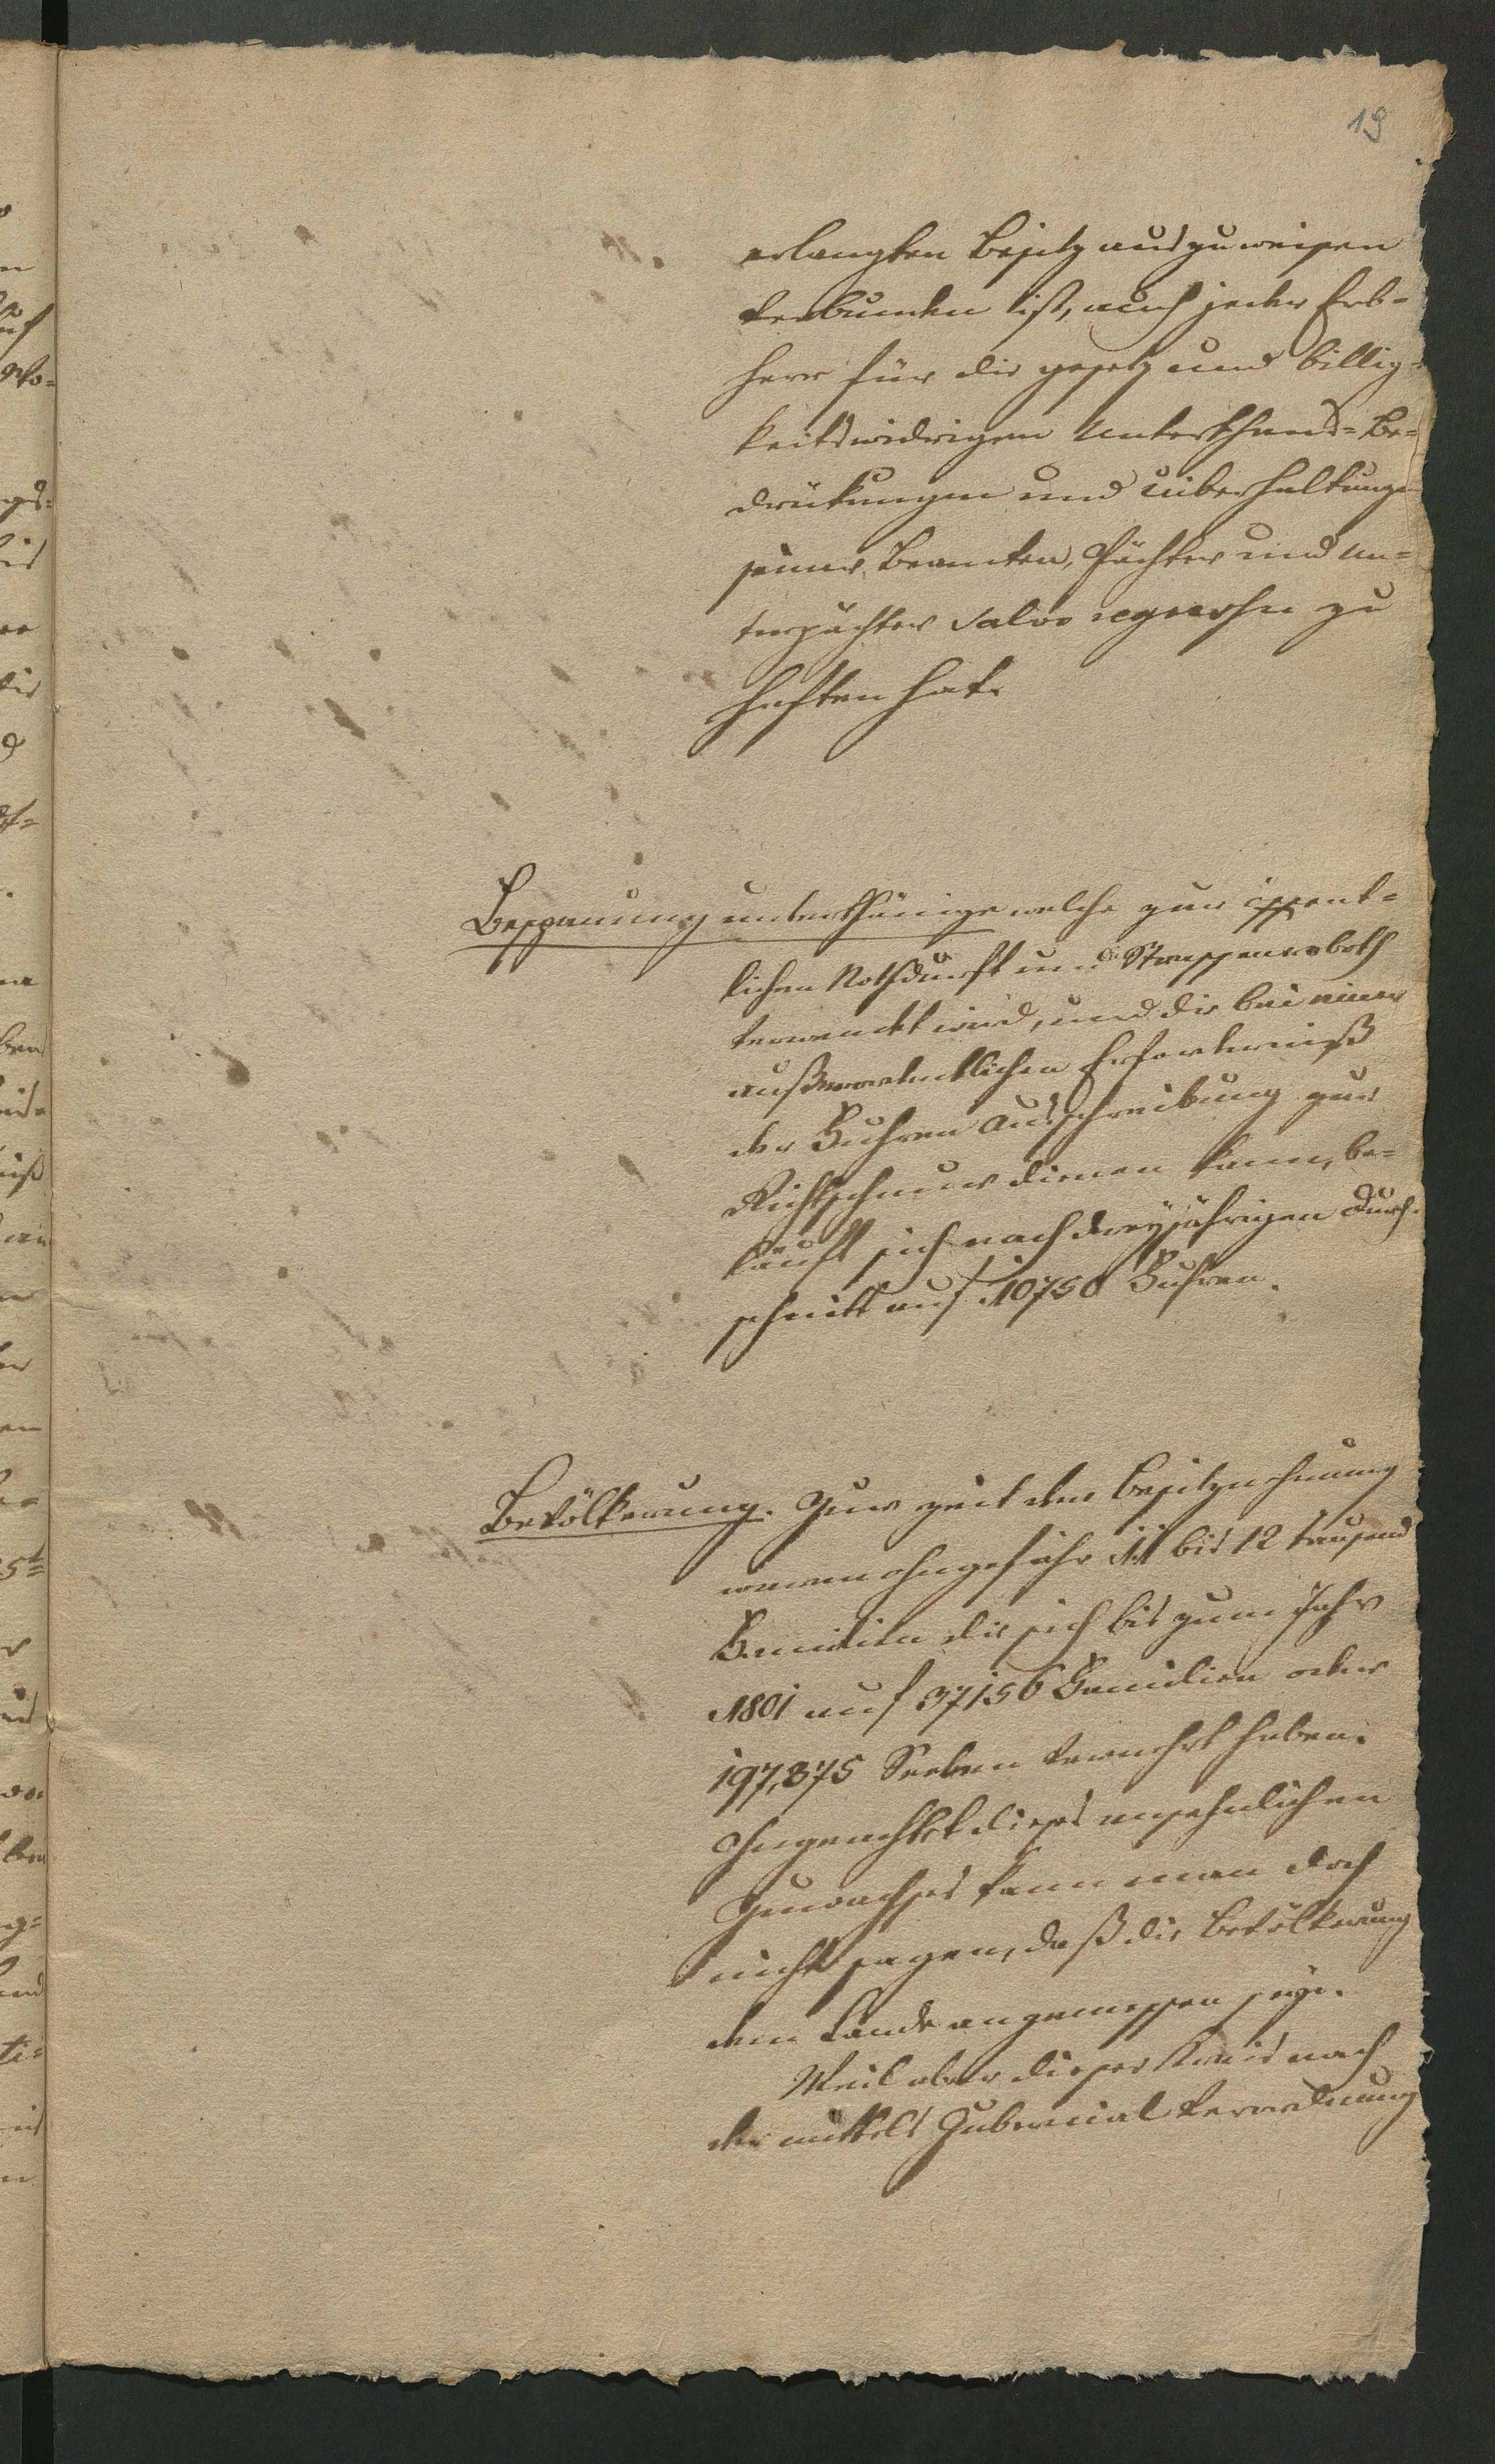 19
erlangten Besitz auszuweisen
verbunden ist, auch jeder Erb-
herr für die gesetz und billig-
keitswidrigen Unterthans-Be-
drükungen und Uiberhaltungen
seiner Beamten, Pächter und Un-
terpächter salvo regressu zu
haften hat.
Bespannung unterthänige welche zur öffent-
lichen Nothdurft und
verwendet wird, und die bei einer
außerordentlichen Erforderniß
der Fuhren Ausschreibung zur
Richtschnur dienen kann, be-
läuft sich nach dreyjährigen Durch-
schnitt auf 10750 Fuhren.
Bevölkerung. Zur Zeit der Besitznehmung
waren ohngefähr 11 bis 12 tausend
Familien die sich bis zum Jahr
1801 auf 37156 Familien oder
197,875 Seelen vermehrt haben.
Ohngeachtet dieses ansehnlichen
Zuwachses kann man doch
nicht sagen, daß die Bevölkerung
dem Lande angemessen seye.
Weil aber dieser Kreis nach
der mittels Gubernial Verordnung